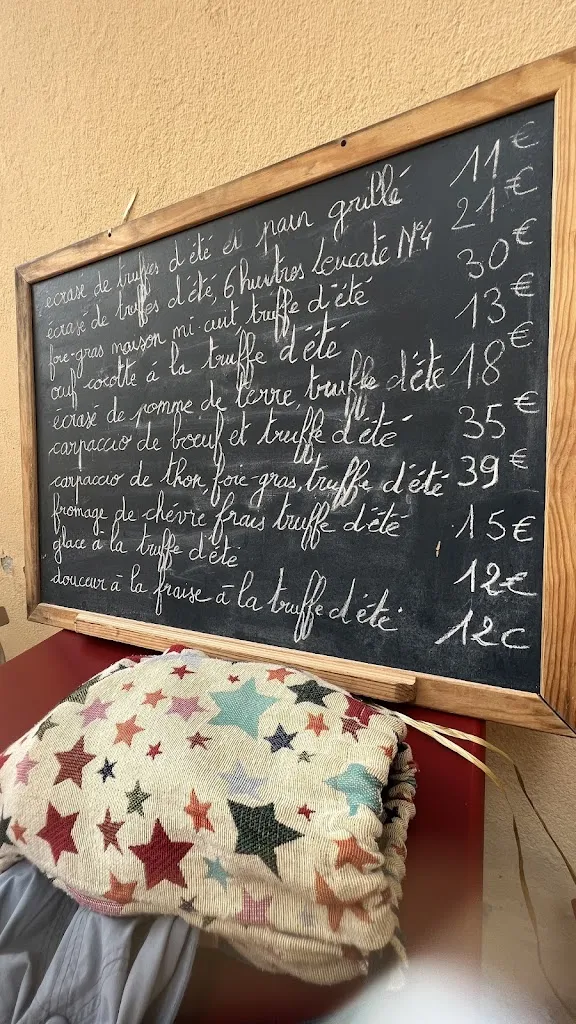 écrasé de truffes d'été et pain grillé 11€
écrasé de truffes d'été, 6 huîtres Leucate N°4 21€
foie-gras maison mi-cuit, truffe d'été 30€
œuf cocotte à la truffe d'été 13€
écrasé de pomme de terre, truffe d'été 18€
carpaccio de bœuf et truffe d'été 35€
carpaccio de thon, foie-gras, truffe d'été 39€
fromage de chévre frais truffe d'été 15€
glace à la truffe d'été 12€
douceur à la fraise à la truffe d'été 12€